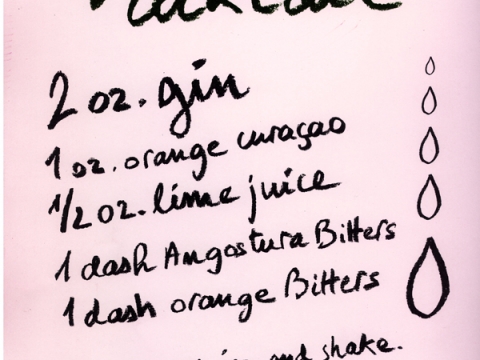 2 oz. gin
1 oz. orange curaçao
1/2 oz. lime juice
1 dash Angostura Bitters
1 dash orange Bitters
and shake.